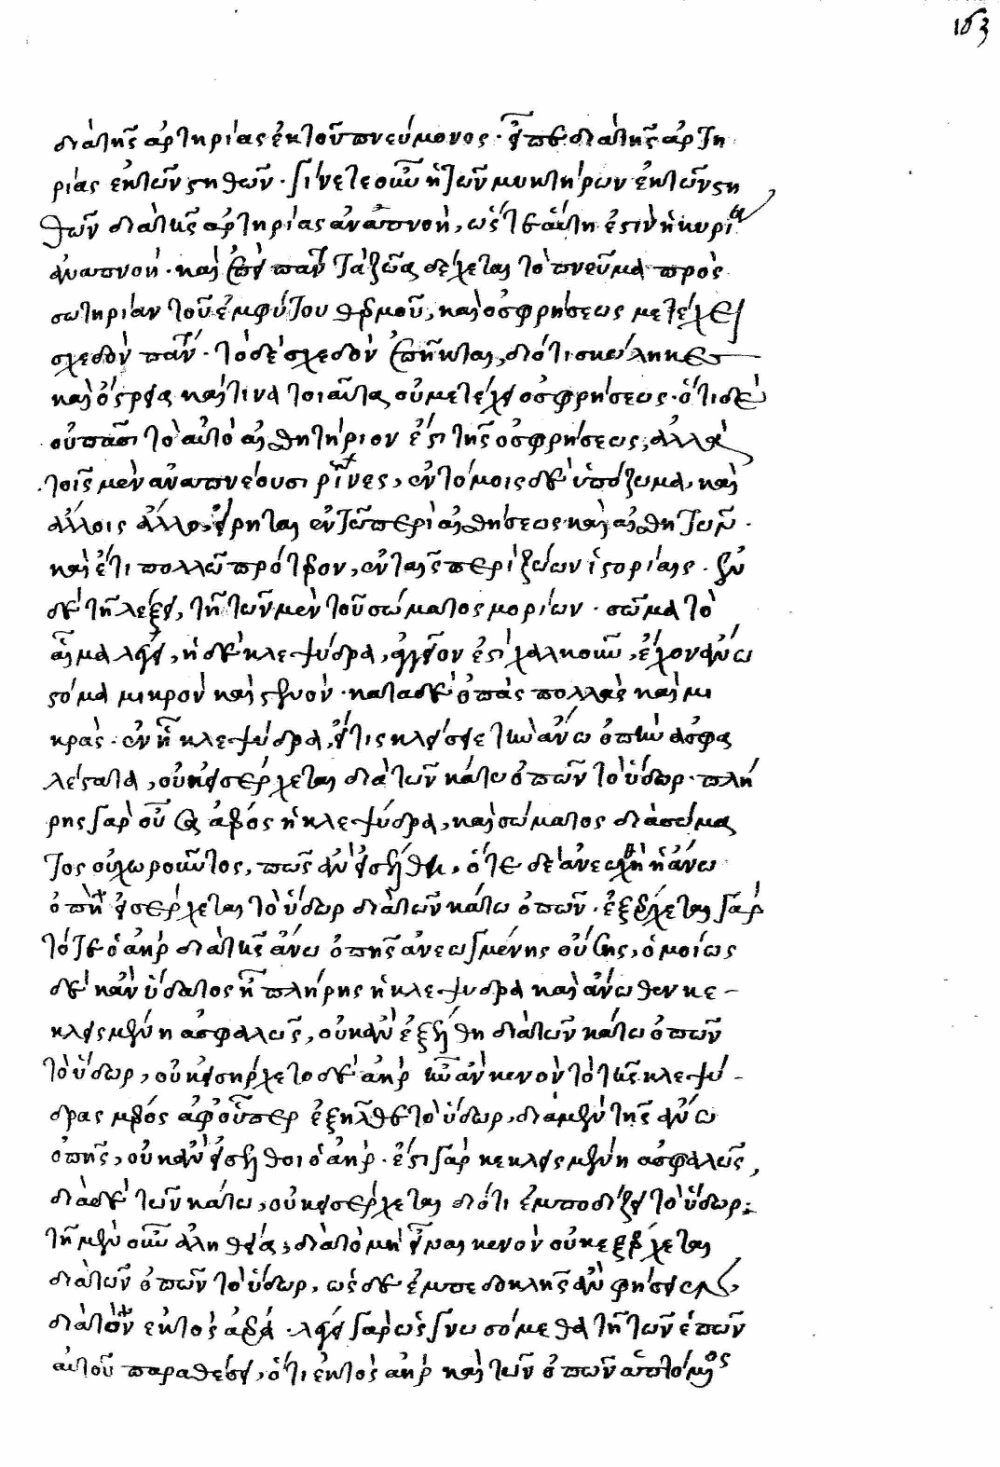 163
διὰ τῆς ἀρτηρίας ἐκ τοῦ πνεύμονος· εἶπε διὰ τῆς ἀρτη
ρίας ἐκ τῶν στηθῶν· γίνεται οὖν ἡ τῶν μυκτήρων ἐκ τῶν στη
θῶν διὰ τῆς ἀρτηρίας ἀναπνοή, ὥστε αὕτη ἐστὶν ἡ κυρία
ἀναπνοή· καὶ ἐπεὶ πάντα τὰ ζῶα δέχεται τὸ πνεῦμα πρὸς
σωτηρίαν τοῦ ἐμφύτου θερμοῦ, καὶ ὀσφρήσεως μετέχει
σχεδὸν πάντα· τὸ δὲ σχεδὸν εἴρηται, διότι σκώληκες
καὶ ὄστρεα καί τινα τοιαῦτα οὐ μετέχει ὀσφρήσεως· ὅτι δὲ
οὐ πᾶσι τὸ αὐτὸ αἰσθητήριον ἐστὶ τῆς ὀσφρήσεως, ἀλλὰ
τοῖς μὲν ἀναπνέουσι ῥῖνες, ἐντόμοις δὲ ὑπόζωμα, καὶ
ἄλλοις ἄλλο, εἴρηται ἐν τῶ περὶ αἰσθήσεως καὶ αἰσθητῶν·
καὶ ἔτι πολλῶ πρότερον, ἐν ταῖς περὶ ζώων ἱστορίαις·
δὲ τῆ λέξει, τῆ τῶν μὲν τοῦ σώματος μορίων· σῶμα τὸ
αἷμα λέγει, ἡ δὲ κλεψύδρα, ἀγγεῖον ἐστὶ χαλκοῦν, ἔχον ἄνω
στόμα μικρὸν καὶ στενόν· κάτω δὲ ὀπὰς πολλὰς καὶ μι
κράς· ἐν ἧ κλεψύδρα, εἴ τις κλείσει τὴν ἄνω ὀπὴν ἀσφα
λέστατα, οὐκ εἰσέρχεται διὰ τῶν κάτω ὀπῶν τὸ ὕδωρ· πλή
ρης γὰρ οὖσα ἀέρος ἡ κλεψύδρα, καὶ σώματος διὰ σώμα
τος οὐ χωροῦντος, πῶς ἂν εἰσέλθη, ὅτε δὲ ἀνεώχθη ἡ ἄνω
ὀπὴ εἰσέρχεται τὸ ὕδωρ διὰ τῶν κάτω ὀπῶν· ἐξέρχεται γὰρ
τότε ὁ ἀὴρ διὰ τῆς ἄνω ὀπῆς ἀνεωγμένης οὔσης, ὁμοίως
δὲ κἂν ὕδατος ἦ πλήρης ἡ κλεψύδρα καὶ ἄνωθεν κε-
κλεισμένη ἀσφαλῶς, οὐκ ἂν ἐξέλθη διὰ τῶν κάτω ὀπῶν
τὸ ὕδωρ, οὐκ εἰσήρχετο δὲ ἀὴρ εἰς τὸ κενὸν τὸ τῆς κλεψύ-
δρας μέρος ἀφ' οὗπερ ἐξῆλθε τὸ ὕδωρ, διὰ μὲν τῆς ἄνω
ὀπῆς, οὐκ ἂν εἰσέλθοι ὁ ἀήρ· ἔστι γὰρ κεκλεισμένη ἀσφαλῶς,
διὰ δὲ τῶν κάτω, οὐκ εἰσέρχεται διότι ἐμποδίζει τὸ ὕδωρ·
τῆ μὲν οὖν ἀληθεία, διὰ τὸ μὴ εἶναι κενὸν οὐκ ἐξέρχεται
διὰ τῶν ὀπῶν τὸ ὕδωρ, ὡς δὲ ἐμπεδοκλῆς ἂν φήσειε,
διὰ τὸν ἐκτὸς ἀέρα· λέγει γὰρ ὡς γνωσόμεθα τῆ τῶν ἐπῶν
αὐτοῦ παραθέσει, ὅτι ἐκτὸς ἀὴρ καὶ τῶν ὀπῶν ἁπτόμενος